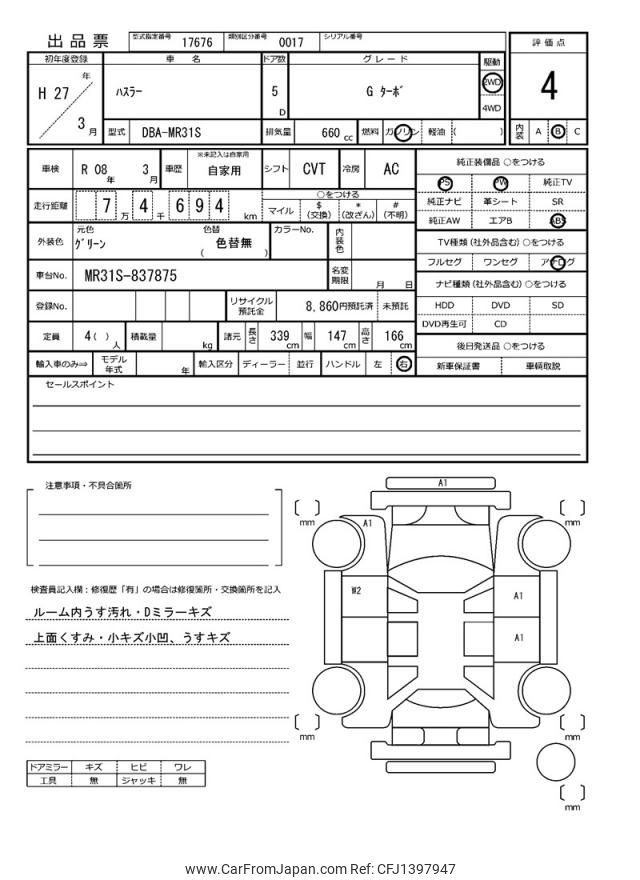 出品票 型式指定番号 17676 類別区分番号 0017 シリアル番号
評価点
4
内装 A B C
初年度登録 車名 ドア数 グレード 駆動
H 27 年 3 月 ハスラー 5 D G ターボ 2WD 4WD
型式 DBA-MR31S 排気量 660 cc 燃料 ガソリン 軽油 ( )
車検 R 08 年 3 月 車歴 ※未記入は自家用 自家用 シフト CVT 冷房 AC
走行距離 7 万 4 千 6 9 4 km
○をつける
マイル $ (交換) * (改ざん) # (不明)
外装色 元色 グリーン 色替 色替無 ( ) カラーNo. 内装色
車台No. MR31S-837875 名変期限 月 日
登録No. リサイクル預託金 8,860円預託済 未預託
定員 4 ( ) 人 積載量 kg 諸元 長さ 339 cm 幅 147 cm 高さ 166 cm
輸入車のみ⇒ モデル年式 年 輸入区分 ディーラー 並行 ハンドル 左 右
純正装備品 ○をつける
PS PW 純正TV
純正ナビ 革シート SR
純正AW エアB ABS
TV種類 (社外品含む) ○をつける
フルセグ ワンセグ アナログ
ナビ種類 (社外品含む) ○をつける
HDD DVD SD
DVD再生可 CD
後日発送品 ○をつける
新車保証書 車輌取説
セールスポイント
注意事項・不具合箇所
検査員記入欄:修復歴「有」の場合は修復箇所・交換箇所を記入
ルーム内うす汚れ・Dミラーキズ
上面くすみ・小キズ小凹、うすキズ
ドアミラー キズ ヒビ ワレ
工具 無 ジャッキ 無
A1
mm
mm
A1
W2
A1
A1
mm
mm
mm
www.CarFromJapan.com Ref: CFJ1397947